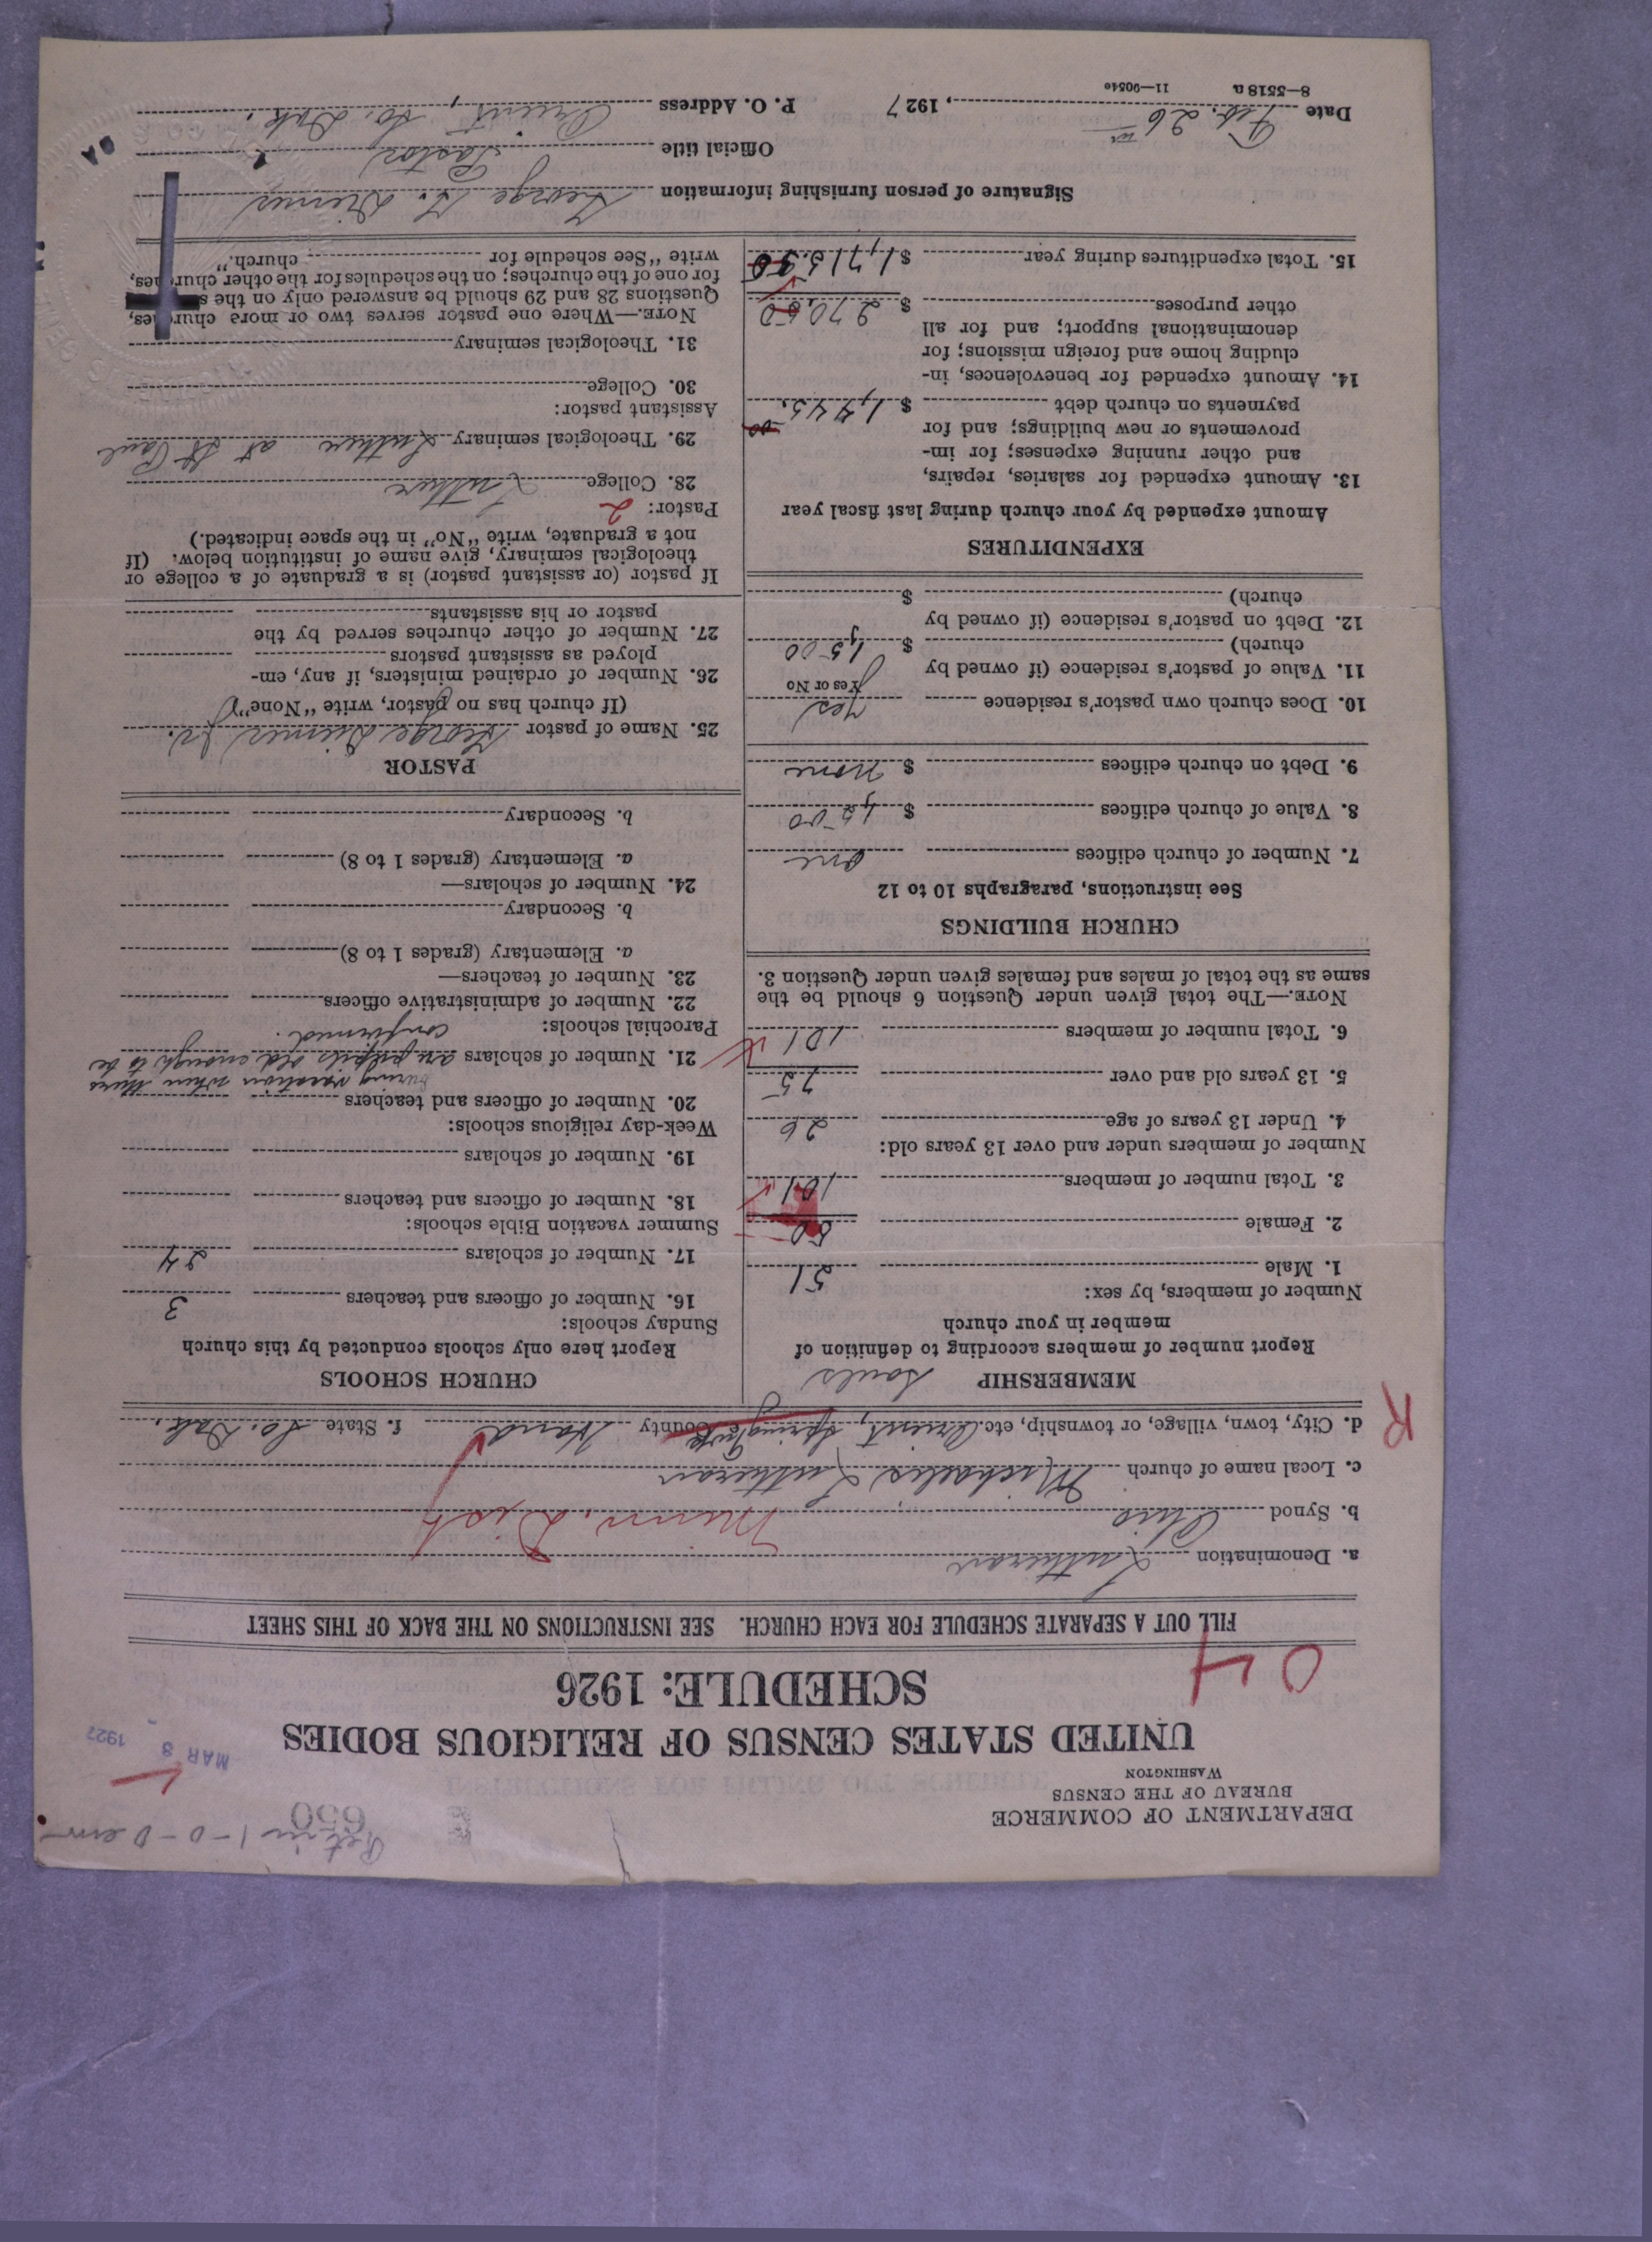 DEPARTMENT OF COMMERCE
BUREAU OF THE CENSUS
WASHINGTON
650
MAR 8 1927
UNITED STATES CENSUS OF RELIGIOUS BODIES
SCHEDULE: 1926
04
FILL OUT A SEPARATE SCHEDULE FOR EACH CHURCH. SEE INSTRUCTIONS ON THE BACK OF THIS SHEET
a. Denomination Lutheran
b. Synod Ohio Minn. Dist
c. Local name of church Michaelis Lutheran
d. City, town, village, or township, etc. Orient, Spring County Hand f. State So. Dak.
R
MEMBERSHIP souls
Report number of members according to definition of
member in your church
Number of members, by sex:
1. Male 51
2. Female 50
3. Total number of members 101
Number of members under and over 13 years old:
4. Under 13 years of age 26
5. 13 years old and over 75
6. Total number of members 101
NOTE.—The total given under Question 6 should be the
same as the total of males and females given under Question 3.
CHURCH BUILDINGS
See instructions, paragraphs 10 to 12
7. Number of church edifices one
8. Value of church edifices $
9. Debt on church edifices $ none
10. Does church own pastor's residence Yes
Yes or No
11. Value of pastor's residence (if owned by
church) $ 1,500
12. Debt on pastor's residence (if owned by
church) $
EXPENDITURES
Amount expended by your church during last fiscal year
13. Amount expended for salaries, repairs,
and other running expenses; for im-
provements or new buildings; and for
payments on church debt $ 1,445.00
14. Amount expended for benevolences, in-
cluding home and foreign missions; for
denominational support; and for all
other purposes $ 270.50
15. Total expenditures during year $ 1,715.50
CHURCH SCHOOLS
Report here only schools conducted by this church
Sunday schools:
16. Number of officers and teachers 3
17. Number of scholars 24
Summer vacation Bible schools:
18. Number of officers and teachers
19. Number of scholars
Week-day religious schools:
20. Number of officers and teachers during vacation when there
21. Number of scholars are pupils old enough to be
Parochial schools: confirmed.
22. Number of administrative officers
23. Number of teachers—
a. Elementary (grades 1 to 8)
b. Secondary
24. Number of scholars—
a. Elementary (grades 1 to 8)
b. Secondary
PASTOR
25. Name of pastor George
(If church has no pastor, write "None")
26. Number of ordained ministers, if any, em-
ployed as assistant pastors
27. Number of other churches served by the
pastor or his assistants
If pastor (or assistant pastor) is a graduate of a college or
theological seminary, give name of institution below. (If
not a graduate, write "No" in the space indicated.)
Pastor: 2
28. College Luther
29. Theological seminary Luther at St Paul
Assistant pastor:
30. College
31. Theological seminary
NOTE.—Where one pastor serves two or more churches,
Questions 28 and 29 should be answered only on the
for one of the churches; on the schedules for the other churches,
write "See schedule for church."
Signature of person furnishing information George
Official title Pastor
Date Feb. 26, 1927 P. O. Address Orient, So. Dak.
8—5518 a 11—9054e